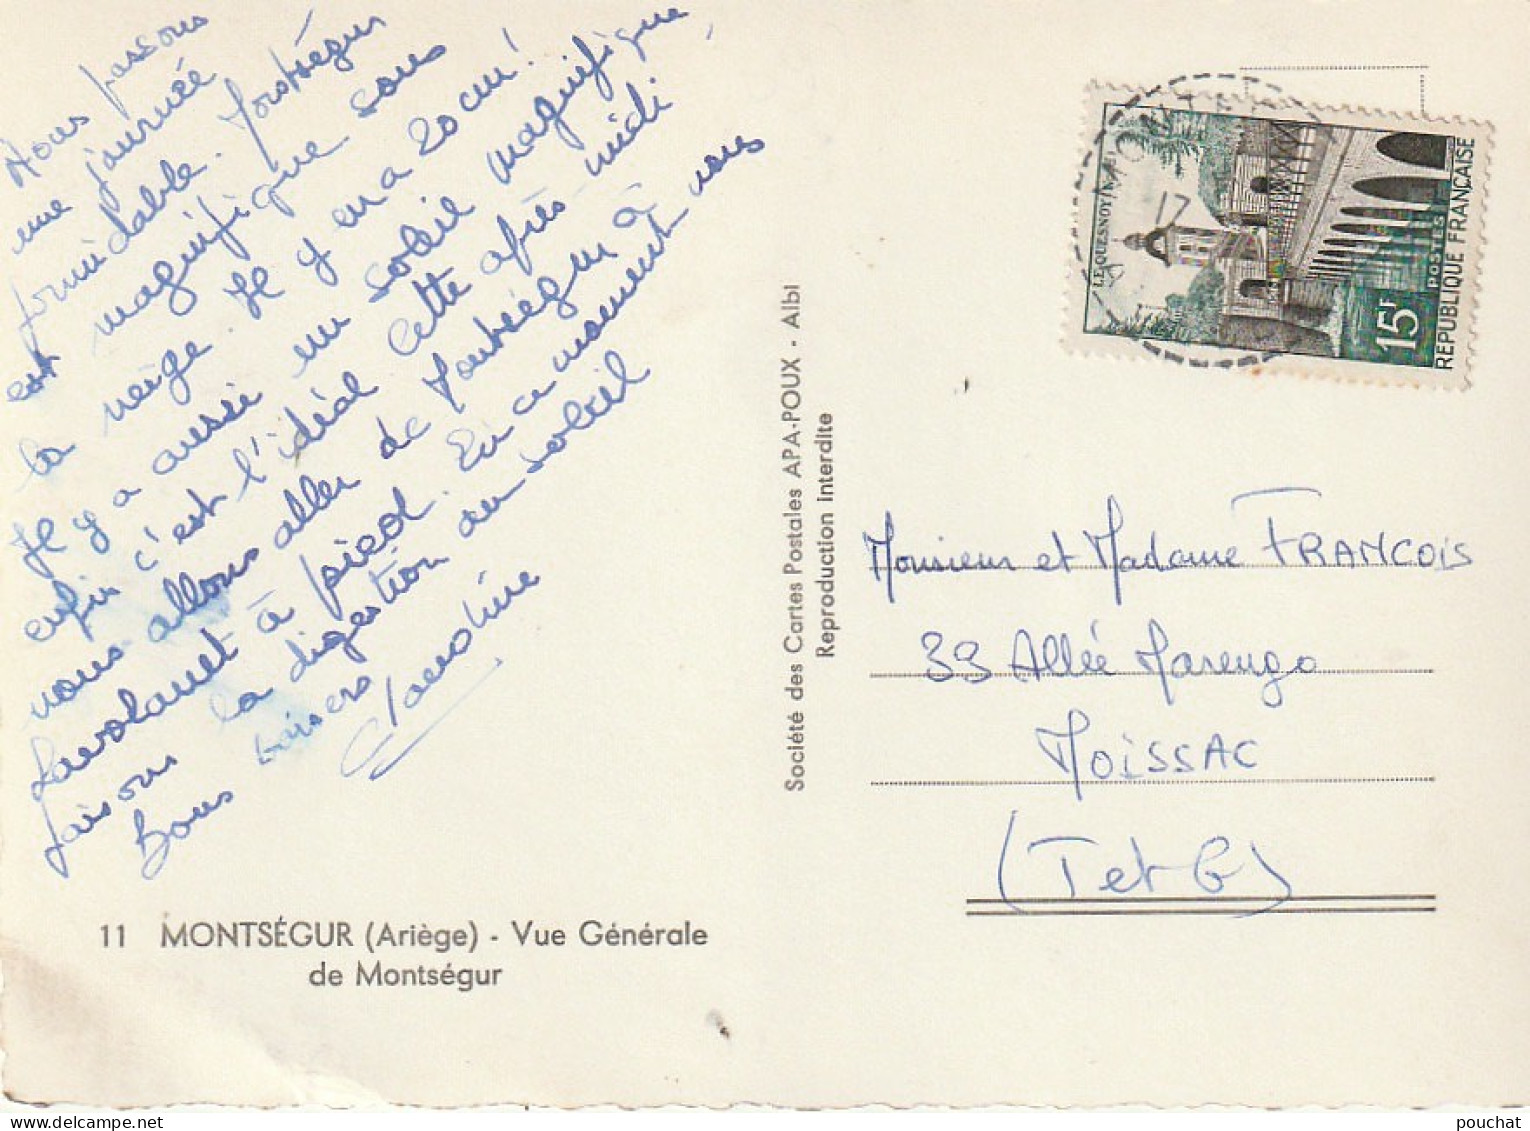 Nous passons
une journée
formidable. Montségur
est magnifique sous
la neige. Il y en a 20 cm !
Il y a aussi un soleil magnifique,
enfin c'est l'idéal. Cette après-midi
nous allons aller de Montségur à
Lavelanet à pied. En ce moment nous
faisons la digestion au soleil
Bons baisers
Claudine
11 MONTSÉGUR (Ariège) - Vue Générale
de Montségur
Société des Cartes Postales APA-POUX - Albi
Reproduction Interdite
LE QUESNOY
17
15F
POSTES
REPUBLIQUE FRANÇAISE
Monsieur et Madame FRANCOIS
39 Allée Marengo
MOISSAC
(T et G)
pouchat